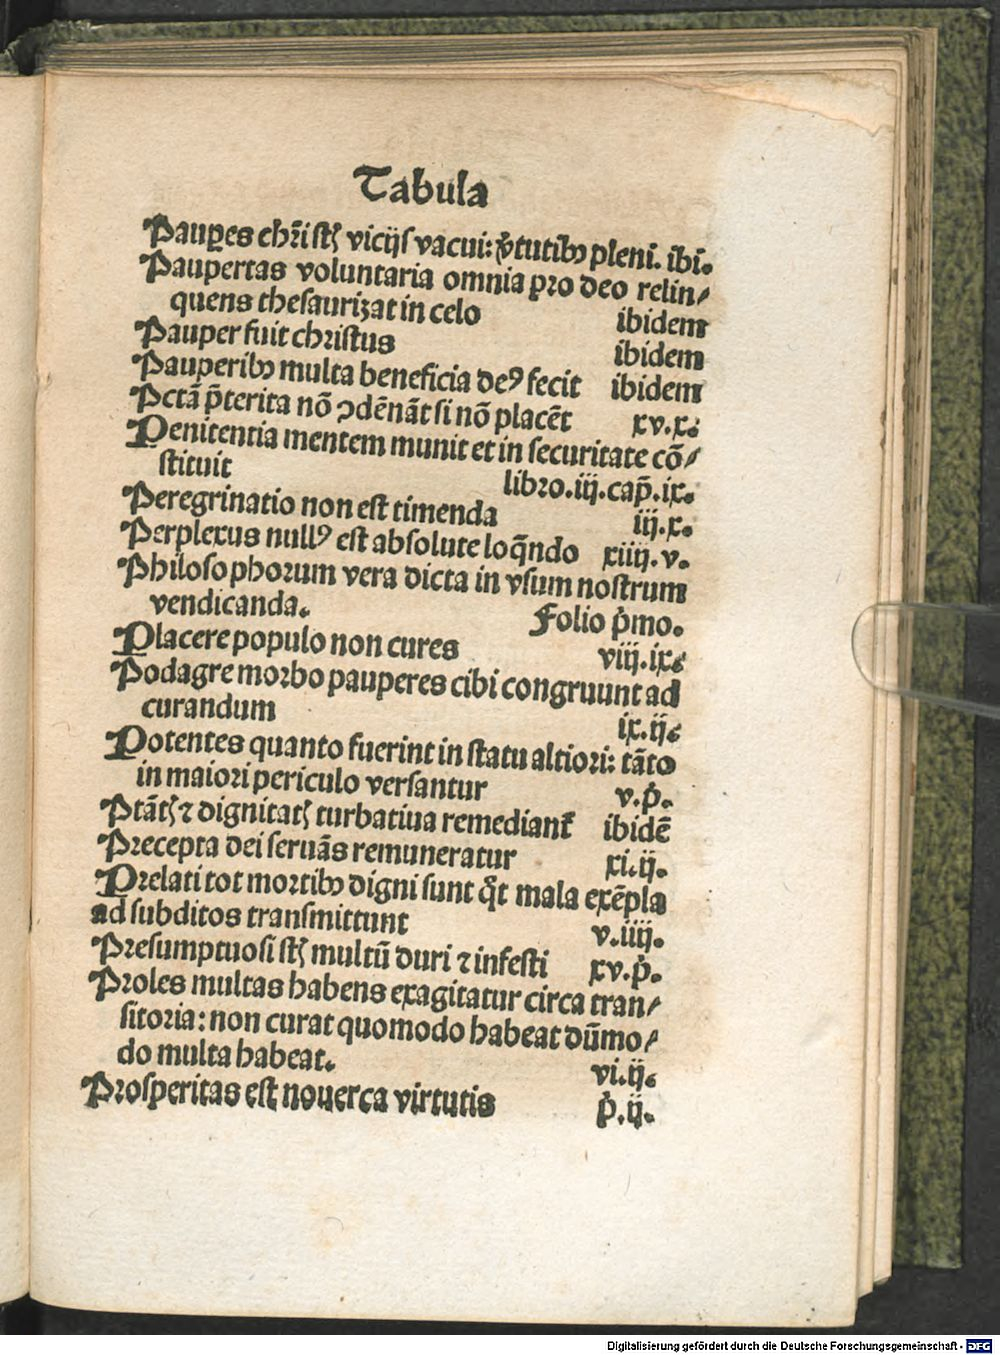 Tabula
Pauꝑes chꝛi̅ stꝭ vicijs vacui: v̾tutibꝰ pleni̅. ibi̅.
Paupertas voluntaria omnia pꝛo deo relin⸗
quens thesaurizat in celo ibidem
Pauper fuit chꝛistus ibidem
Pauperibꝰ multa beneficia deꝰ fecit ibidem
Pctā p̄terita nō ꝯdēnāt si nō placēt xv.x.
Penitentia mentem munit et in securitate cō⸗
stituit libꝛo.iij.cap̄.ix.
Peregrinatio non est timenda iij.x.
Perplexus nullꝰ est absolute loq̄ndo xiiij.v.
Philosophoꝛum vera dicta in vsum nostrum
vendicanda. Folio p̊mo.
Placere populo non cures viij.ix.
Podagre moꝛbo pauperes cibi congruunt ad
curandum ix.ij.
Potentes quanto fuerint in statu altioꝛi: tāto
in maioꝛi periculo versantur v.p̊.
Ptātꝭ ⁊ dignitatꝭ turbatiua remediant᷑ ibidē
Pꝛecepta dei seruās remuneratur xi.ij.
Pꝛelati tot moꝛtibꝰ digni sunt qͦt mala exēpla
ad subditos transmittunt v.iiij.
Pꝛesumptuosi stꝭ multū duri ⁊ infesti xv.p̊.
Pꝛoles multas habens exagitatur circa tran⸗
sitoꝛia: non curat quomodo habeat dūmo⸗
do multa habeat. vi.ij.
Pꝛosperitas est nouerca virtutis p̊.ij.
Digitalisierung gefördert durch die Deutsche Forschungsgemeinschaft - DFG